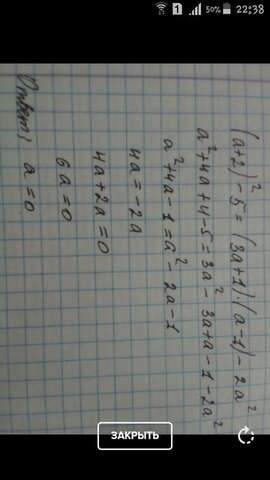 1 50% 22:38
(a+2)² - 5 = (3a+1)(a-1) - 2a²
a²+4a+4-5=3a²-3a+a-1-2a²
a²+4a-1=a²-2a-1
4a=-2a
4a+2a=0
6a=0
Ответ: a=0
ЗАКРЫТЬ